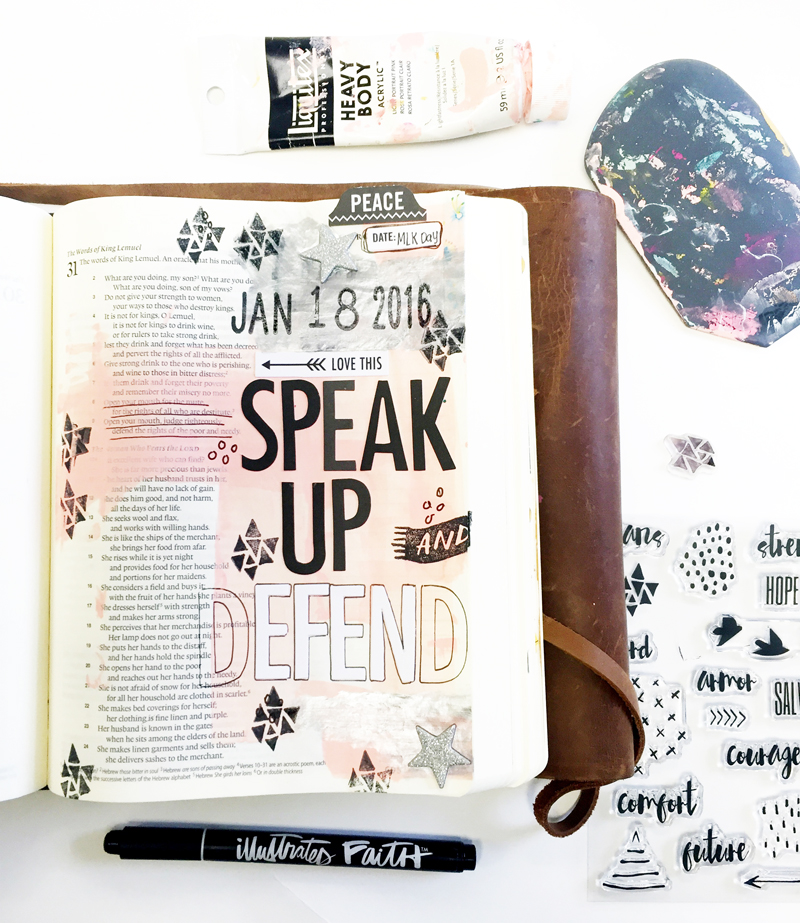 Liquitex
PROFESSIONAL
HEAVY
BODY
ACRYLIC
PEACE
DATE: MLK Day
JAN 18 2016
LOVE THIS
SPEAK
UP
AND
DEFEND
The Words of King Lemuel
31 The words of King Lemuel. An oracle that his
2 What are you doing, my son? What are you
What are you doing, son of my vows?
3 Do not give your strength to women,
your ways to those who destroy kings.
4 It is not for kings, O Lemuel,
it is not for kings to drink wine,
or for rulers to take strong drink,
lest they drink and forget what has been decreed
and pervert the rights of all the afflicted.
Give strong drink to the one who is perishing,
and wine to those in bitter distress;
them drink and forget their poverty
and remember their misery no more.
Open your mouth for the mute,
for the rights of all who are destitute.
Open your mouth, judge righteously,
defend the rights of the poor and needy.
who can find?
more precious than
The heart of her husband trusts in
and he will have no lack of gain.
She does him good, and not harm,
all the days of her life.
13 She seeks wool and flax,
and works with willing hands.
14 She is like the ships of the merchant;
she brings her food from afar.
15 She rises while it is yet night
and provides food for her household
and portions for her maidens.
16 She considers a field and buys it;
with the fruit of her hands she plants a
17 She dresses herself with strength
and makes her arms strong.
18 She perceives that her merchandise is profitable.
Her lamp does not go out at night.
19 She puts her hands to the distaff,
and her hands hold the spindle.
20 She opens her hand to the poor
and reaches out her hands to the needy.
21 She is not afraid of snow for her household,
for all her household are clothed in scarlet.
22 She makes bed coverings for herself;
her clothing is fine linen and purple.
23 Her husband is known in the gates
when he sits among the elders of the land.
24 She makes linen garments and sells them;
she delivers sashes to the merchant.
HOPE
armor
courage
comfort
future
illustrated FAITH™